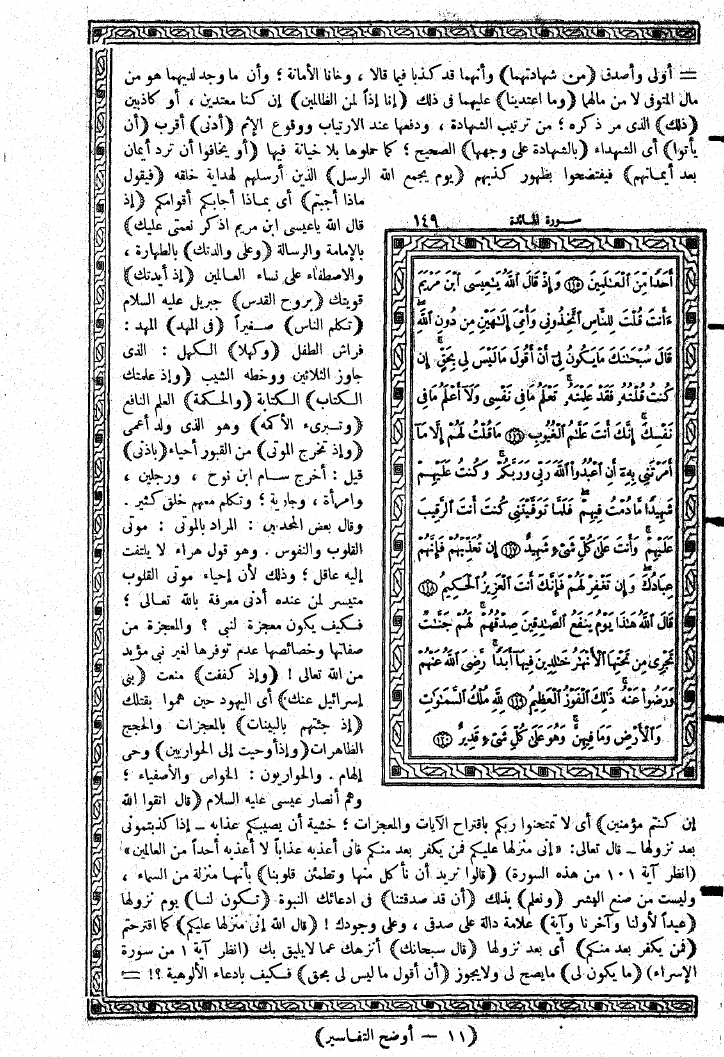 = أولى وأصدق (من شهادتهما) وأنهما قد كذبا فيما قالا ، وخانا الأمانة ؛ وأن ما وجد لديهما هو من
مال المتوفى لا من مالهما (وما اعتدينا) عليهما فى ذلك (إنا إذاً لمن الظالمين) إن كنا معتدين ، أو كاذبين
(ذلك) الذى مر ذكره ؛ من ترتيب الشهادة ، ودفعها عند الارتياب ووقوع الإثم (أدنى) أقرب (أن
يأتوا) أى الشهداء (بالشهادة على وجهها) الصحيح ؛ كما حملوها بلا خيانة فيها (أو يخافوا أن ترد أيمان
بعد أيمانهم) فيفتضحوا بظهور كذبهم (يوم يجمع الله الرسل) الذين أرسلهم لهداية خلقه (فيقول
ماذا أجبتم) أى بماذا أجابكم أقوامكم (إذ
قال الله ياعيسى ابن مريم اذكر نعمتى عليك)
بالإمامة والرسالة (وعلى والدتك) بالطهارة ،
والاصطفاء على نساء العالمين (إذ أيدتك)
قويتك (بروح القدس) جبريل عليه السلام
(تكلم الناس) صغيراً (فى المهد) المهد :
فراش الطفل (وكهلا) الكهل : الذى
جاوز الثلاثين ووخطه الشيب (وإذ علمتك
الكتاب) الكتابة (والحكمة) العلم النافع
(وتبرىء الأكمه) وهو الذى ولد أعمى
(وإذ تخرج الموتى) من القبور أحياء (بإذنى)
قيل : أخرج سام ابن نوح ، ورجلين ،
وامرأة ، وجارية ؛ وتكلم معهم خلق كثير .
وقال بعض المحدثين : المراد بالموتى : موتى
القلوب والنفوس . وهو قول هراء لا يلتفت
إليه عاقل ؛ وذلك لأن إحياء موتى القلوب
متيسر لمن عنده أدنى معرفة بالله تعالى ؛
فكيف يكون معجزة لنبى ؟ والمعجزة من
صفاتها وخصائصها عدم توفرها لغير نبى مؤيد
من الله تعالى ! (وإذ كففت) منعت (بنى
إسرائيل عنك) أى اليهود حين هموا بقتلك
(إذ جئتهم بالبينات) بالمعجزات والحجج
الظاهرات (وإذ أوحيت إلى الحواريين) وحى
إلهام . والحواريون : الخواص والأصفياء ؛
وهم أنصار عيسى عليه السلام (قال اتقوا الله
سورة المائدة ١٤٩
أَحَدًا مِّنَ ٱلْعَٰلَمِينَ ﴿١١٥﴾ وَإِذْ قَالَ ٱللَّهُ يَٰعِيسَى ٱبْنَ مَرْيَمَ
ءَأَنتَ قُلْتَ لِلنَّاسِ ٱتَّخِذُونِى وَأُمِّىَ إِلَٰهَيْنِ مِن دُونِ ٱللَّهِ
قَالَ سُبْحَٰنَكَ مَا يَكُونُ لِىٓ أَنْ أَقُولَ مَا لَيْسَ لِى بِحَقٍّ إِن
كُنتُ قُلْتُهُۥ فَقَدْ عَلِمْتَهُۥ تَعْلَمُ مَا فِى نَفْسِى وَلَآ أَعْلَمُ مَا فِى
نَفْسِكَ إِنَّكَ أَنتَ عَلَّٰمُ ٱلْغُيُوبِ ﴿١١٦﴾ مَا قُلْتُ لَهُمْ إِلَّا مَآ
أَمَرْتَنِى بِهِۦٓ أَنِ ٱعْبُدُوا۟ ٱللَّهَ رَبِّى وَرَبَّكُمْ وَكُنتُ عَلَيْهِمْ
شَهِيدًا مَّا دُمْتُ فِيهِمْ فَلَمَّا تَوَفَّيْتَنِى كُنتَ أَنتَ ٱلرَّقِيبَ
عَلَيْهِمْ وَأَنتَ عَلَىٰ كُلِّ شَىْءٍ شَهِيدٌ ﴿١١٧﴾ إِن تُعَذِّبْهُمْ فَإِنَّهُمْ
عِبَادُكَ وَإِن تَغْفِرْ لَهُمْ فَإِنَّكَ أَنتَ ٱلْعَزِيزُ ٱلْحَكِيمُ ﴿١١٨﴾
قَالَ ٱللَّهُ هَٰذَا يَوْمُ يَنفَعُ ٱلصَّٰدِقِينَ صِدْقُهُمْ لَهُمْ جَنَّٰتٌ
تَجْرِى مِن تَحْتِهَا ٱلْأَنْهَٰرُ خَٰلِدِينَ فِيهَآ أَبَدًا رَّضِىَ ٱللَّهُ عَنْهُمْ
وَرَضُوا۟ عَنْهُ ذَٰلِكَ ٱلْفَوْزُ ٱلْعَظِيمُ ﴿١١٩﴾ لِلَّهِ مُلْكُ ٱلسَّمَٰوَٰتِ
وَٱلْأَرْضِ وَمَا فِيهِنَّ وَهُوَ عَلَىٰ كُلِّ شَىْءٍ قَدِيرٌ ﴿١٢٠﴾
إن كنتم مؤمنين) أى لا تمتحنوا ربكم باقتراح الآيات والمعجزات ؛ خشية أن يصيبكم عذابه – إذا كذبتمونى
بعد نزولها – قال تعالى: «إنى منزلها عليكم فمن يكفر بعد منكم فإنى أعذبه عذاباً لا أعذبه أحداً من العالمين»
(انظر آية ١٠١ من هذه السورة) (قالوا نريد أن نأكل منها وتطمئن قلوبنا) بأنها منزلة من السماء ،
وليست من صنع البشر (ونعلم) بذلك (أن قد صدقتنا) فى ادعائك النبوة (تكون لنا) يوم نزولها
(عيداً لأولنا وآخرنا وآية) علامة دالة على صدقى ، وعلى وجودك ! (قال الله إنى منزلها عليكم) كما اقترحتم
(فمن يكفر بعد منكم) أى بعد نزولها (قال سبحانك) أنزهك عما لا يليق بك (انظر آية ١ من سورة
الإسراء) (ما يكون لى) ما يصح لى ولا يجوز (أن أقول ما ليس لى بحق) فكيف بادعاء الألوهية ؟! =
(١١ – أوضح التفاسير)